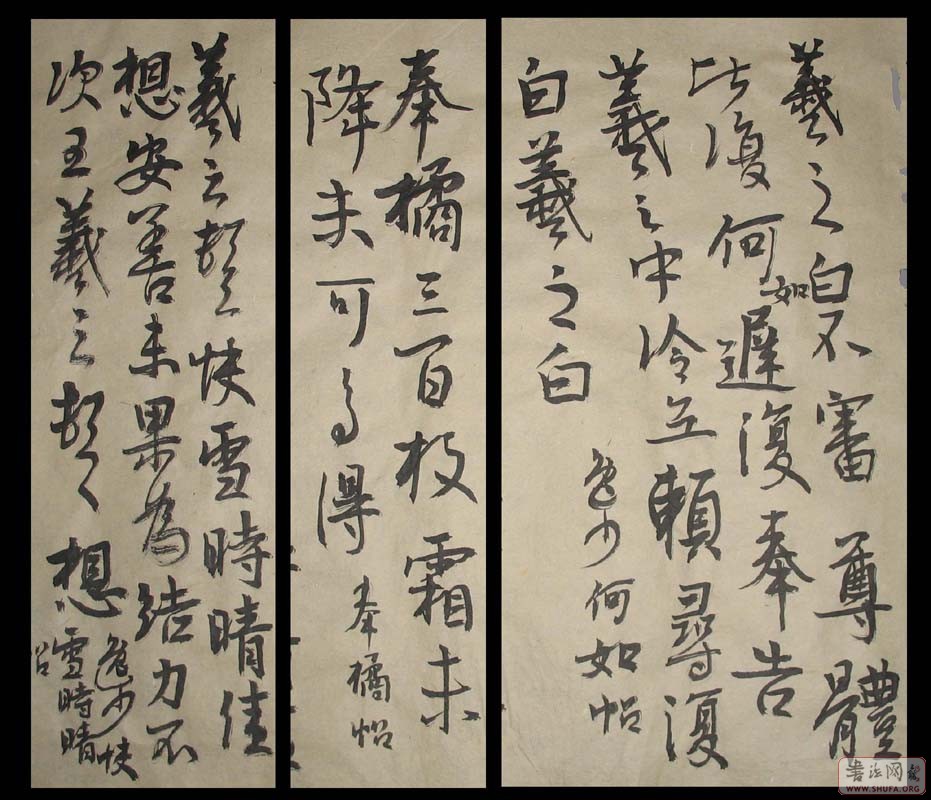 羲之白不審尊體
比復何如遲復奉告
羲之中冷无賴尋復
白羲之白
逸少何如帖
奉橘三百枚霜未
降未可多得
奉橘帖
羲之頓首快雪時晴佳
想安善未果為結力不
次王羲之頓首 想
逸少快
雪時晴
書法网
WWW.SHUFA.ORG